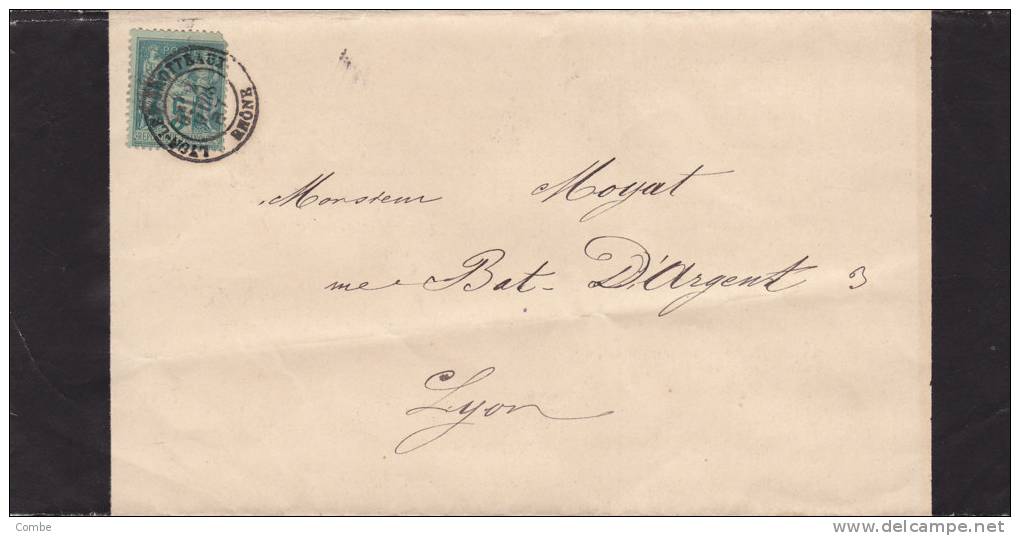 LYON-LES-BROTTEAUX
RHÔNE
Monsieur Moyat
rue Bat- D'Argent 3
Lyon
Combe
www.delcampe.net